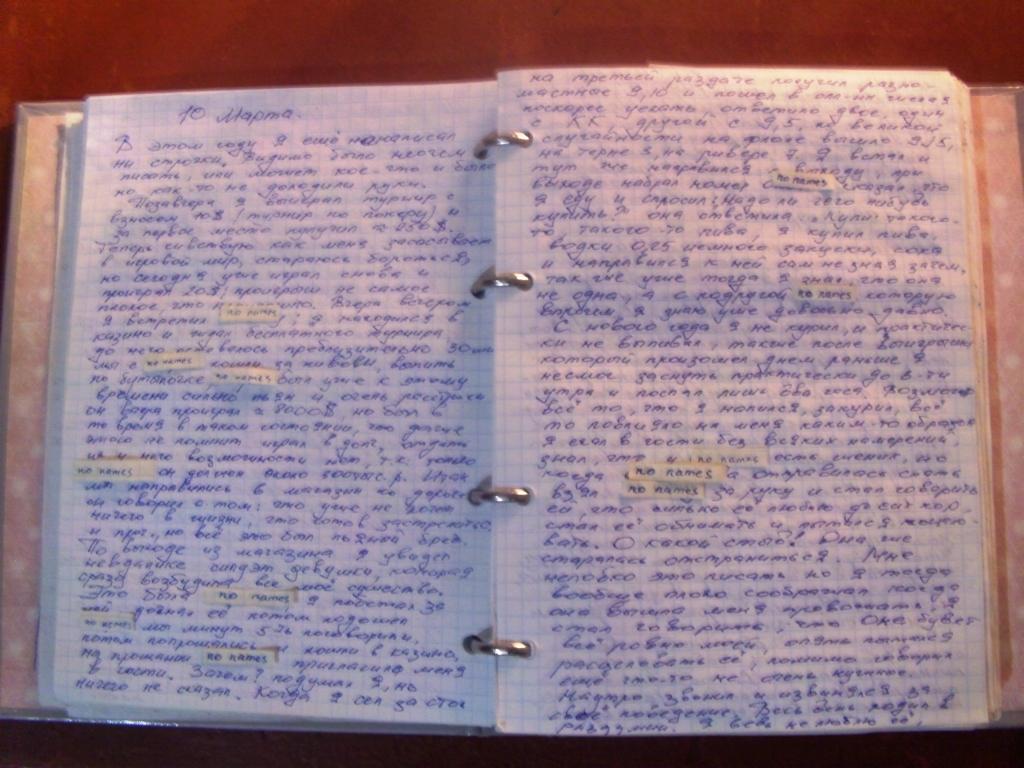 10 Марта.
В этом году я ещё не написал
ни строчки, видимо было нечего
писать, или может кое-что и было
но как-то не доходили руки.
Позавчера я выиграл турнир с
взносом 10$ (турнир по покеру) и
за первое место получил ≈ 450$.
Теперь чувствую как меня засасывает
в игровой мир, стараюсь бороться,
но сегодня уже играл снова и
проиграл 20$; проигрыш не самое
плохое, что Вчера вечером
я встретил no names у; я находился в
казино и ждал бесплатного турнира,
до него оставалось приблизительно 30 мин
мы с no names пошли за пивом, выпить
по бутылочке, no names был уже к этому
времени сильно пьян и очень расстроен
он вчера проиграл ≈ 8000$, но был в
то время в таком состоянии, что даже
этого не помнит играл в долг, отдать
их у него возможности нет, т.к. только
no names он должен около 300тыс.р. Итак
мы направились в магазин по дороге
он говорил о том: что уже не хочет
ничего в жизни, что готов застрелиться
и проч., но всё это был пьяный бред.
По выходе из магазина я увидел
на лавочке сидят девушки, которая
сразу возбудила все моё существо.
Это была no names я побежал за
ней догнал её потом подошёл
no names мы минут 5 поговорили,
потом попрощались и пошли в казино,
на прощание no names пригласила меня
в гости. Зачем? подумал я, но
ничего не сказал. Когда я сел за стол
на третьей раздаче получил разно-
мастные 9,10 и пошёл в олл-ин желая
поскорее уехать ответило двое, один
с КК другой с 9,5, по великой
случайности на флопе вышло
на терне 3, на ривере 7. Я встал и
тут же направился к выходу, при
выходе набрал номер no names сказал, что
я еду и спросил: надо ли чего нибудь
купить? она ответила: Купи такого-
то такого-то пива, я купил пива,
водки 0,25 немного закуски, сока
и направился к ней сам не зная зачем,
так как уже тогда я знал, что она
не одна, а с подругой no names которую
впрочем я знаю уже довольно давно.
С нового года я не курил, и практичес-
ки не выпивал, также после выигрыша
который произошел днем раньше я
не смог заснуть практически до 8-ми
утра и поспал лишь два часа. Возможно
всё то, что я напился, закурил, всё
то повлияло на меня каким-то образом
я ехал в гости без всяких намерений
знал, что у no names есть но
когда no names а отправилась спать
взял no names за руку и стал говорить
ей, что сильно её люблю до сих пор,
стал её обнимать и пытался поцело-
вать. О какой стыд! Она же
старалась отстраниться. Мне
неловко это писать но я тогда
вообще плохо соображал когда
она вышла меня провожать я
стал говорить, что она будет
всё ровно моей, опять пытался
расцеловать её, помимо говорил
ещё что-то не очень нужное.
Наутро звонил и извинялся за
своё поведение. Весь день ходил в
раздумьи. Я ведь не люблю её,